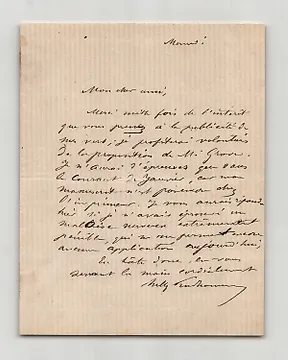 Mardi
Mon cher ami,
Merci mille fois de l'intérêt
que vous prenez à la publicité de
mes vers; je profiterai volontiers
de la proposition de M.
Je n'aurai d'épreuves que dans
le courant de Janvier, car mon
manuscrit n'est pas encore chez
l'imprimeur. Je vous aurais répondu
hier si je n'avais éprouvé un
malaise nerveux extrêmement
pénible, qui ne me permet encore
aucune application aujourd'hui.
En hâte donc, en vous
serrant la main cordialement
Sully Prudhomme